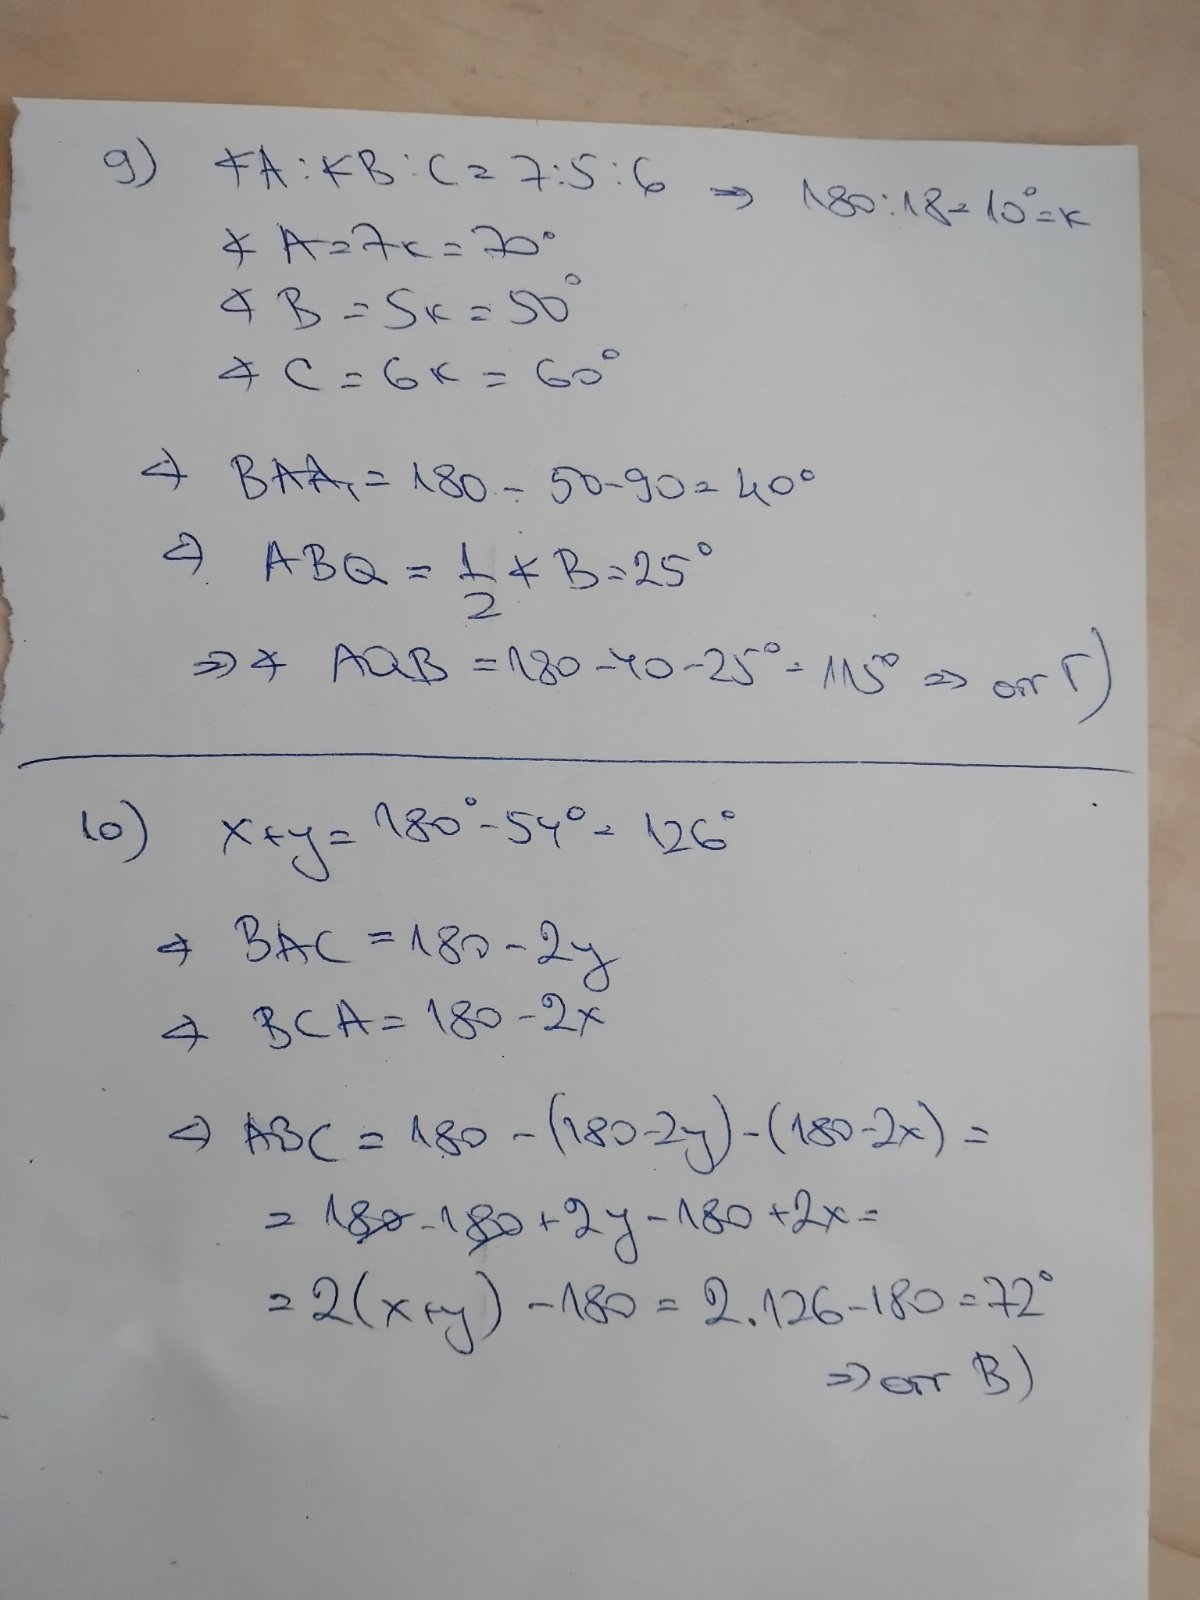 9) ∢A:∢B:C=7:5:6 ⇒ 180:18=10°=k
∢ A=7k=70°
∢ B=5k=50°
∢ C=6k=60°
∢ BAA₁=180-50-90=40°
∢ ABQ = 1/2 ∢ B=25°
⇒ ∢ AQB =180-40-25°=115° ⇒ отг Г)
10) x+y= 180°-54°= 126°
∢ BAC =180-2y
∢ BCA= 180-2x
∢ ABC = 180 -(180-2y)-(180-2x) =
= 180-180+2y-180+2x=
=2(x+y) -180 = 2.126-180=72°
⇒ отг B)